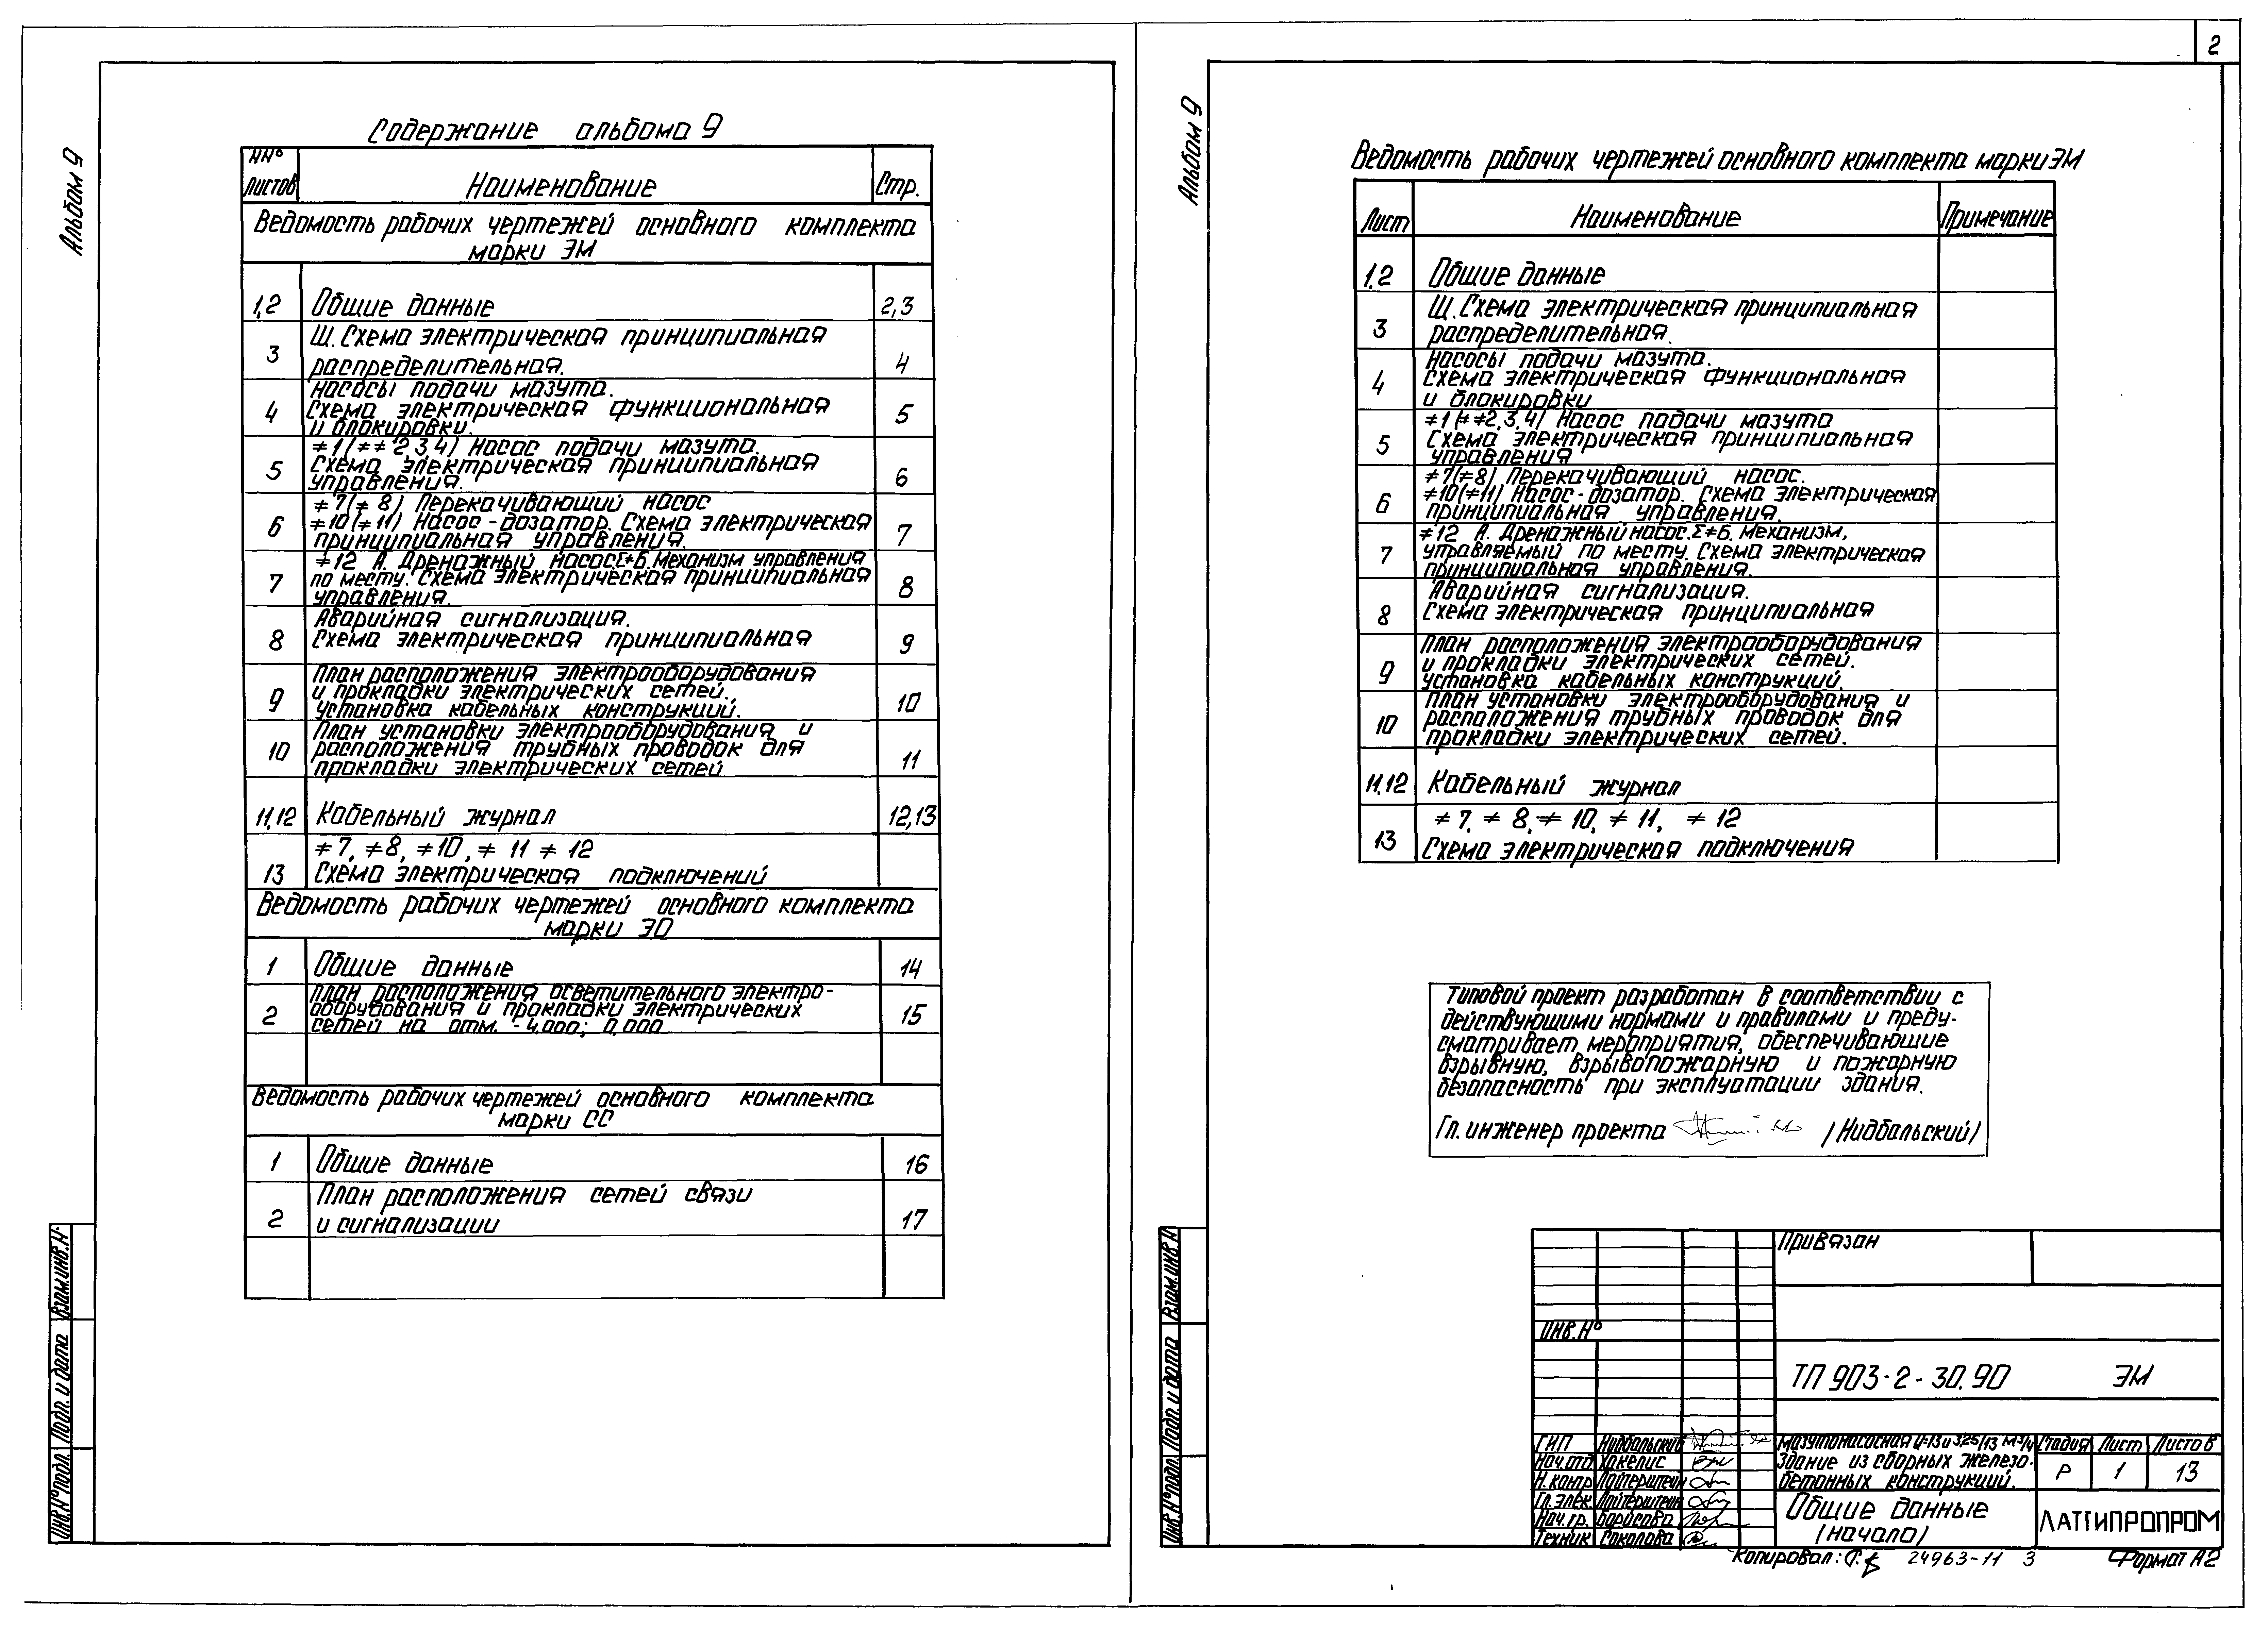 2
Альбом 9
Содержание альбома 9
NN° листов
Наименование
Стр.
Ведомость рабочих чертежей основного комплекта
марки ЭМ
1,2
Общие данные
2,3
3
Щ. Схема электрическая принципиальная
распределительная.
4
4
Насосы подачи мазута.
Схема электрическая функциональная
и блокировки.
5
5
≠1 (≠≠ 2,3,4) Насос подачи мазута.
Схема электрическая принципиальная
управления.
6
6
≠7(≠8) Перекачивающий насос
≠10(≠11) Насос-дозатор. Схема электрическая
принципиальная управления.
7
7
≠12 А. Дренажный насос. Σ≠Б. Механизм управления
по месту. Схема электрическая принципиальная
управления.
8
8
Аварийная сигнализация.
Схема электрическая принципиальная
9
9
План расположения электрооборудования
и прокладки электрических сетей.
установка кабельных конструкций.
10
10
План установки электрооборудования и
расположения трубных проводок для
прокладки электрических сетей
11
11,12
Кабельный журнал
12,13
13
≠7, ≠8, ≠10, ≠ 11 ≠ 12
Схема электрическая подключений
Ведомость рабочих чертежей основного комплекта
марки ЭО
1
Общие данные
14
2
План расположения осветительного электро-
оборудования и прокладки электрических
сетей на отм. -4,000; 0,000
15
Ведомость рабочих чертежей основного комплекта
марки СС
1
Общие данные
16
2
План расположения сетей связи
и сигнализации
17
Инв.N°подл. Подп. и дата Взам.инв.N°
Альбом 9
Ведомость рабочих чертежей основного комплекта марки ЭМ
Лист
Наименование
Примечание
1.2
Общие данные
3
Щ. Схема электрическая принципиальная
распределительная.
4
Насосы подачи мазута.
Схема электрическая функциональная
и блокировки
5
≠1 (≠≠2,3,4) Насос подачи мазута
Схема электрическая принципиальная
управления
6
≠7(≠8) Перекачивающий насос.
≠10(≠11) Насос-дозатор. Схема электрическая
принципиальная управления.
7
≠12 А. Дренажный насос. Σ≠Б. Механизм,
управляемый по месту. Схема электрическая
принципиальная управления.
8
Аварийная сигнализация.
Схема электрическая принципиальная
9
План расположения электрооборудования
и прокладки электрических сетей.
установка кабельных конструкций.
10
План установки электрооборудования и
расположения трубных проводок для
прокладки электрических сетей.
11.12
Кабельный журнал
13
≠7, ≠8, ≠10, ≠11, ≠12
Схема электрическая подключения
Типовой проект разработан в соответствии с
действующими нормами и правилами и преду-
сматривает мероприятия, обеспечивающие
взрывную, взрывопожарную и пожарную
безопасность при эксплуатации здания.
Гл. инженер проекта /Нидбальский/
Инв.N°подл. Подп. и дата Взам.инв.N
Привязан
Инв. N°
ТП 903-2-30.90 ЭМ
ГИП Нидбальский
Нач.отд. Хакелис
Н.контр Лойтерштейн
Гл.элек. Лойтерштейн
Нач.гр. Борисова
Техник Соколова
Мазутонасосная Q=13 и 3,25/13 м³/ч
Здание из сборных железо-
бетонных конструкций.
Стадия Лист Листов
Р 1 13
Общие данные
(начало)
ЛАТГИПРОПРОМ
Копировал: 24963-11 3 Формат А2